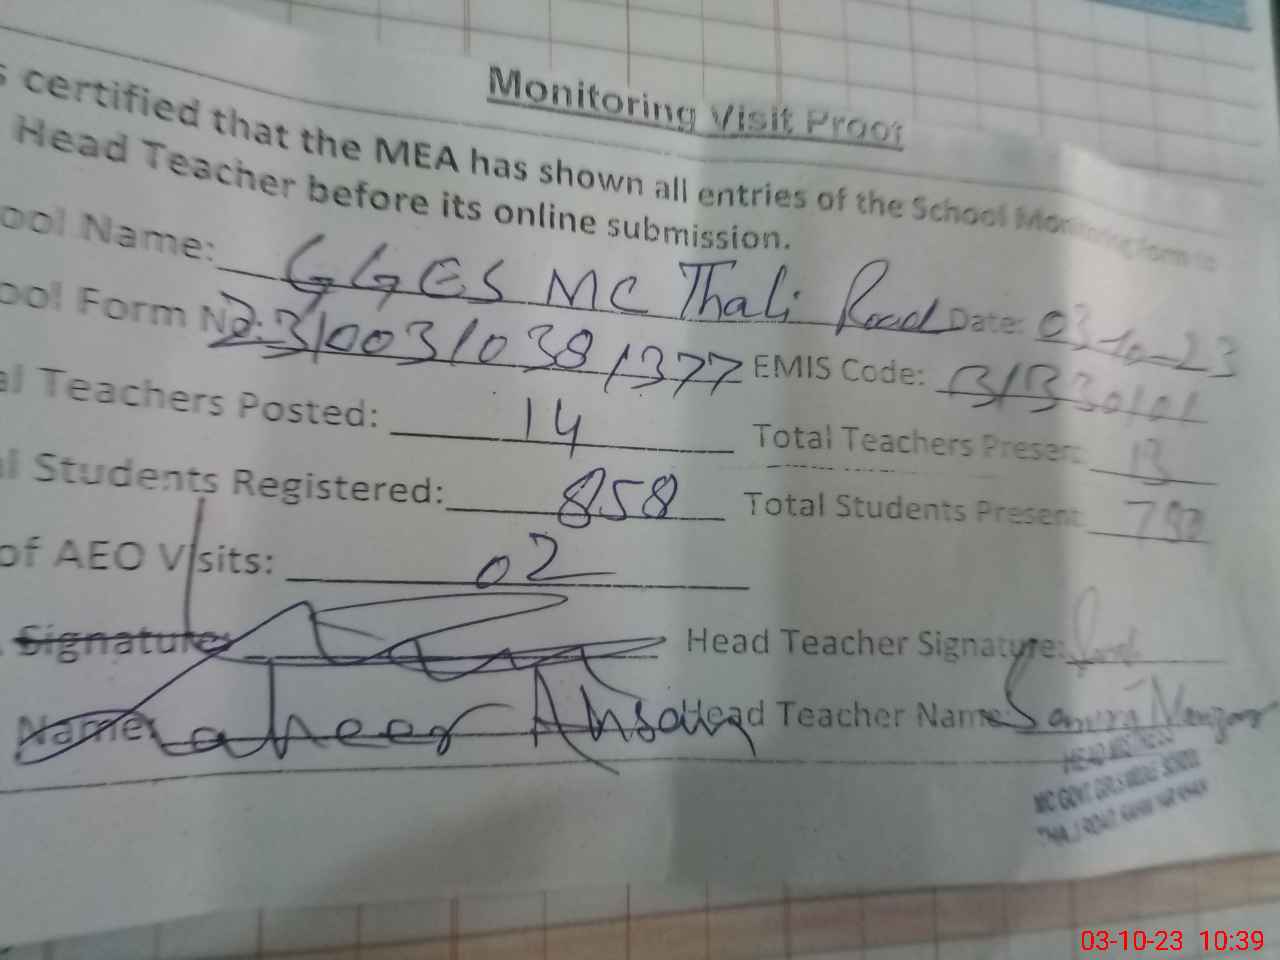 Monitoring Visit Proof
s certified that the MEA has shown all entries of the School Monitoring form to
Head Teacher before its online submission.
ool Name: GGES MC Thali Road Date: 03-10-23
ool Form No. 23100310381377 EMIS Code: 31330101
al Teachers Posted: 14 Total Teachers Present 13
al Students Registered: 858 Total Students Present
of AEO Visits: 02
Signature: Head Teacher Signature:
Name: Head Teacher Name:
HEAD MISTRESS
MC GOVT GIRLS SCHOOL
THALI ROAD
03-10-23 10:39